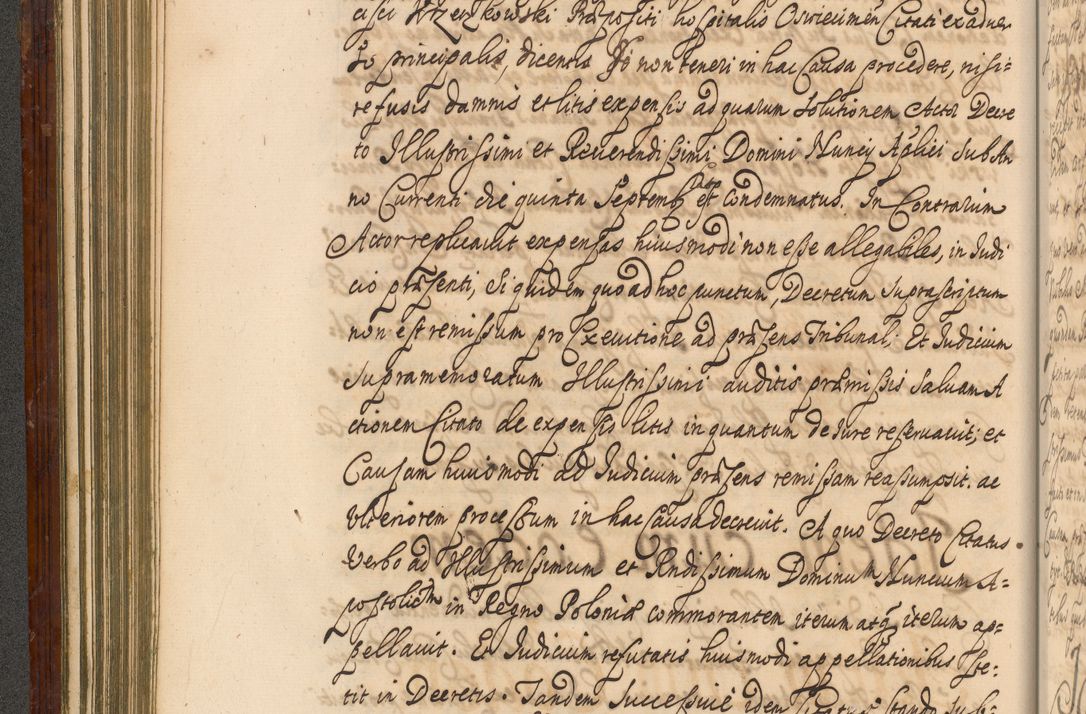 cisci Krzeczkowski Præpositi hospitalis Oswiecimen Citati ex aduer
so principalis, dicentis se non teneri in hac Causa procedere, nisi-
refusis damnis et litis expensis ad quarum solutionem Actor Decre
to Illustrissimi et Reuerendissimi Domini Nuncij Aplici sub An
no Currenti die quinta Septembr est condemnatus. In Contrarium
Actor replicauit expensas huiusmodi non esse allegabiles, in Judi
cio præsenti, si quidem quo ad hoc punctum, Decretum supra scriptum
non est remissum pro Executione ad præsens Tribunal. Et Judicium
supramemoratum Illustrissimi auditis præmissis saluam A
ctionem Citato de expensis litis inquantum de Jure reseruauit; et
Causam huiusmodi ad Judicium præsens remissam reassumpsit. ac
vlteriorem processum in hac Causa decreuit. A quo Decreto Citatus
verbo ad Illustrissimum et Rndissimum Dominum Nuncium A-
postolicum in Regno Poloniæ commorantem iterum atq iterum ap-
pellauit. Et Judicium refutatis huiusmodi appellationibus ste-
tit in Decretis. Tandem successiue idem Citatus stando sub-